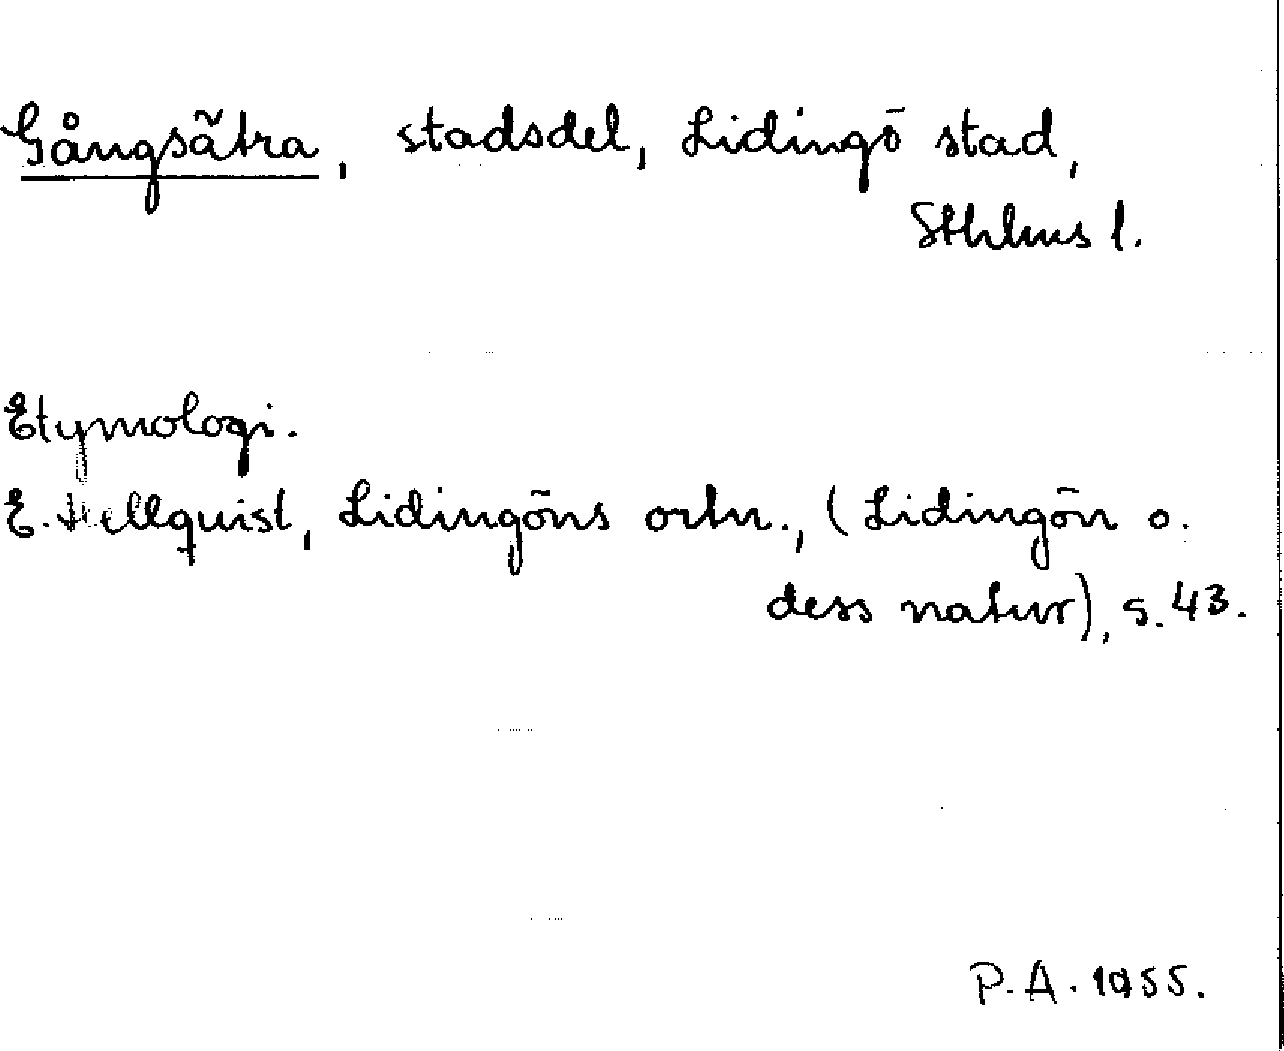 Gångsätra, stadsdel, Lidingö stad,
Sthlms l.
Etymologi.
E. Hellquist, Lidingöns ortn., (Lidingön o.
dess natur), s. 43.
P. A. 1955.